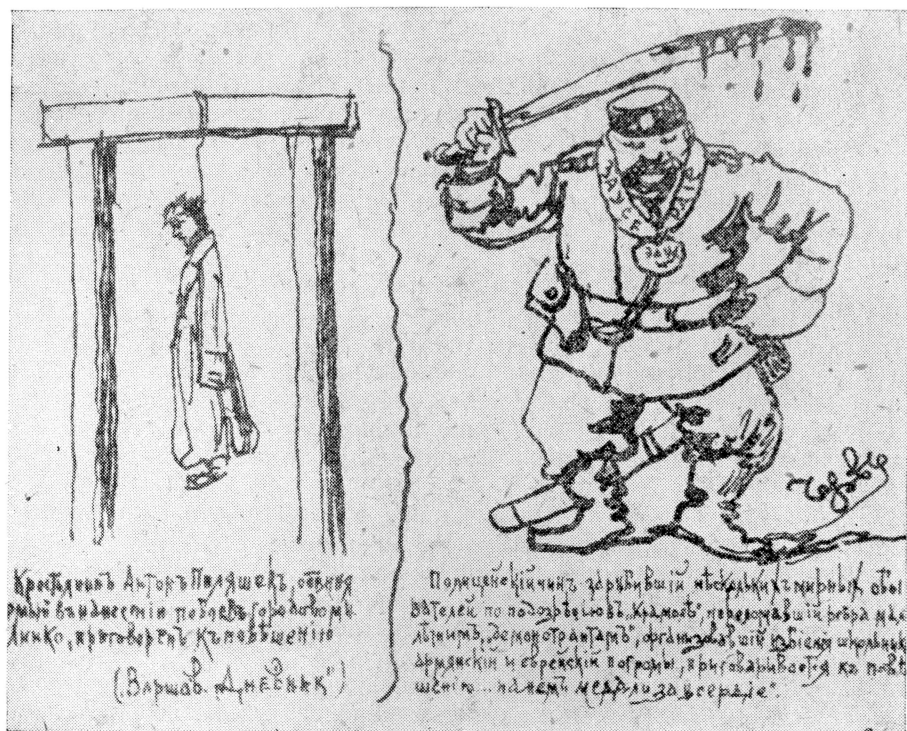 ЗА УСЕРДІЕ
ЗА УС
Крестьянинъ Антонъ Пиляшекъ, обвиня
емый въ нанесеніи побоевъ городовому
приговоренъ къ повѣшенію
(„Варшав. Дневникъ")
Полицейскій чинъ зарубившій нѣсколькихъ мирныхъ обы
вателей по подозрѣнію въ „крамолѣ", переломавшій ребра мал
лѣтнимъ „демонстрантамъ", организовавшій избіеніе школьник
армянскій и еврейскій погромы, приговаривается ко повѣ
шенію... на немъ медали за усердіе".